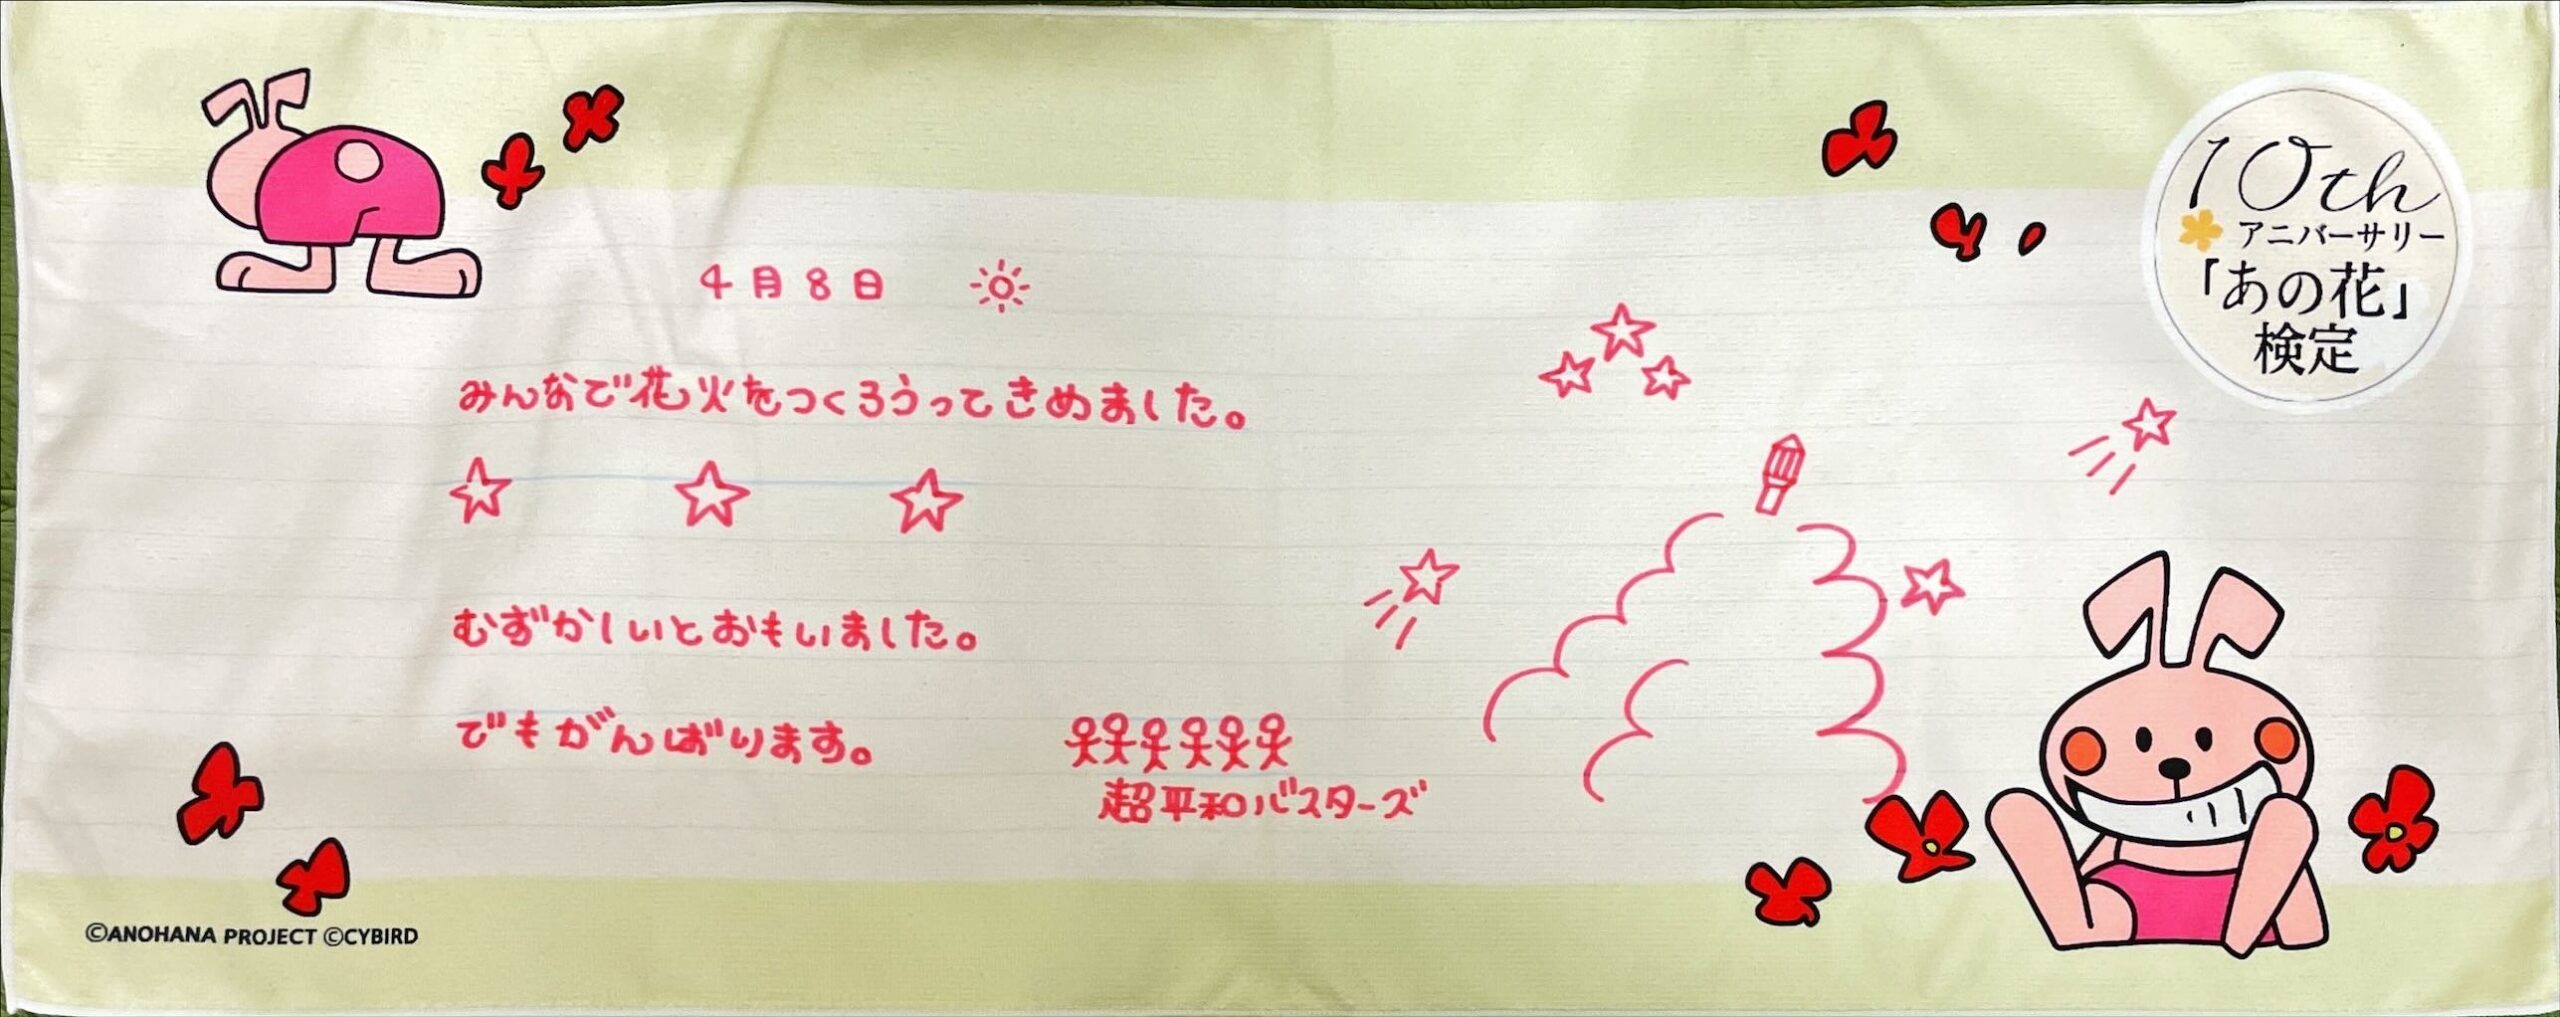 4月8日
みんなで花火をつくろうってきめました。
むずかしいとおもいました。
でもがんばります。
超平和バスターズ
10th
アニバーサリー
「あの花」
検定
©ANOHANA PROJECT ©CYBIRD